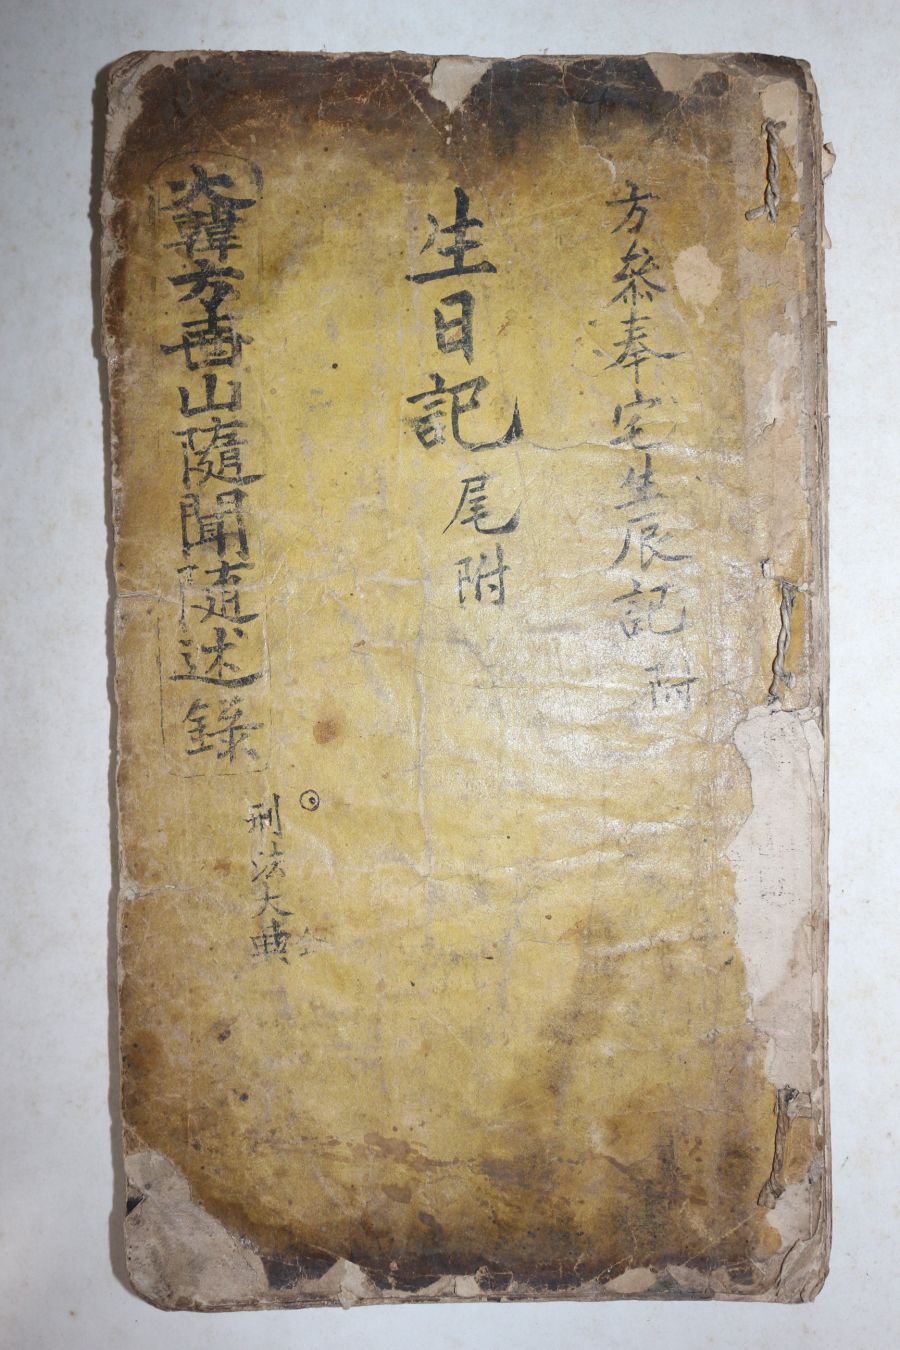 方叅奉宅生辰記 附
生日記 尾附
大韓方善山隨聞随述錄
刑法大典